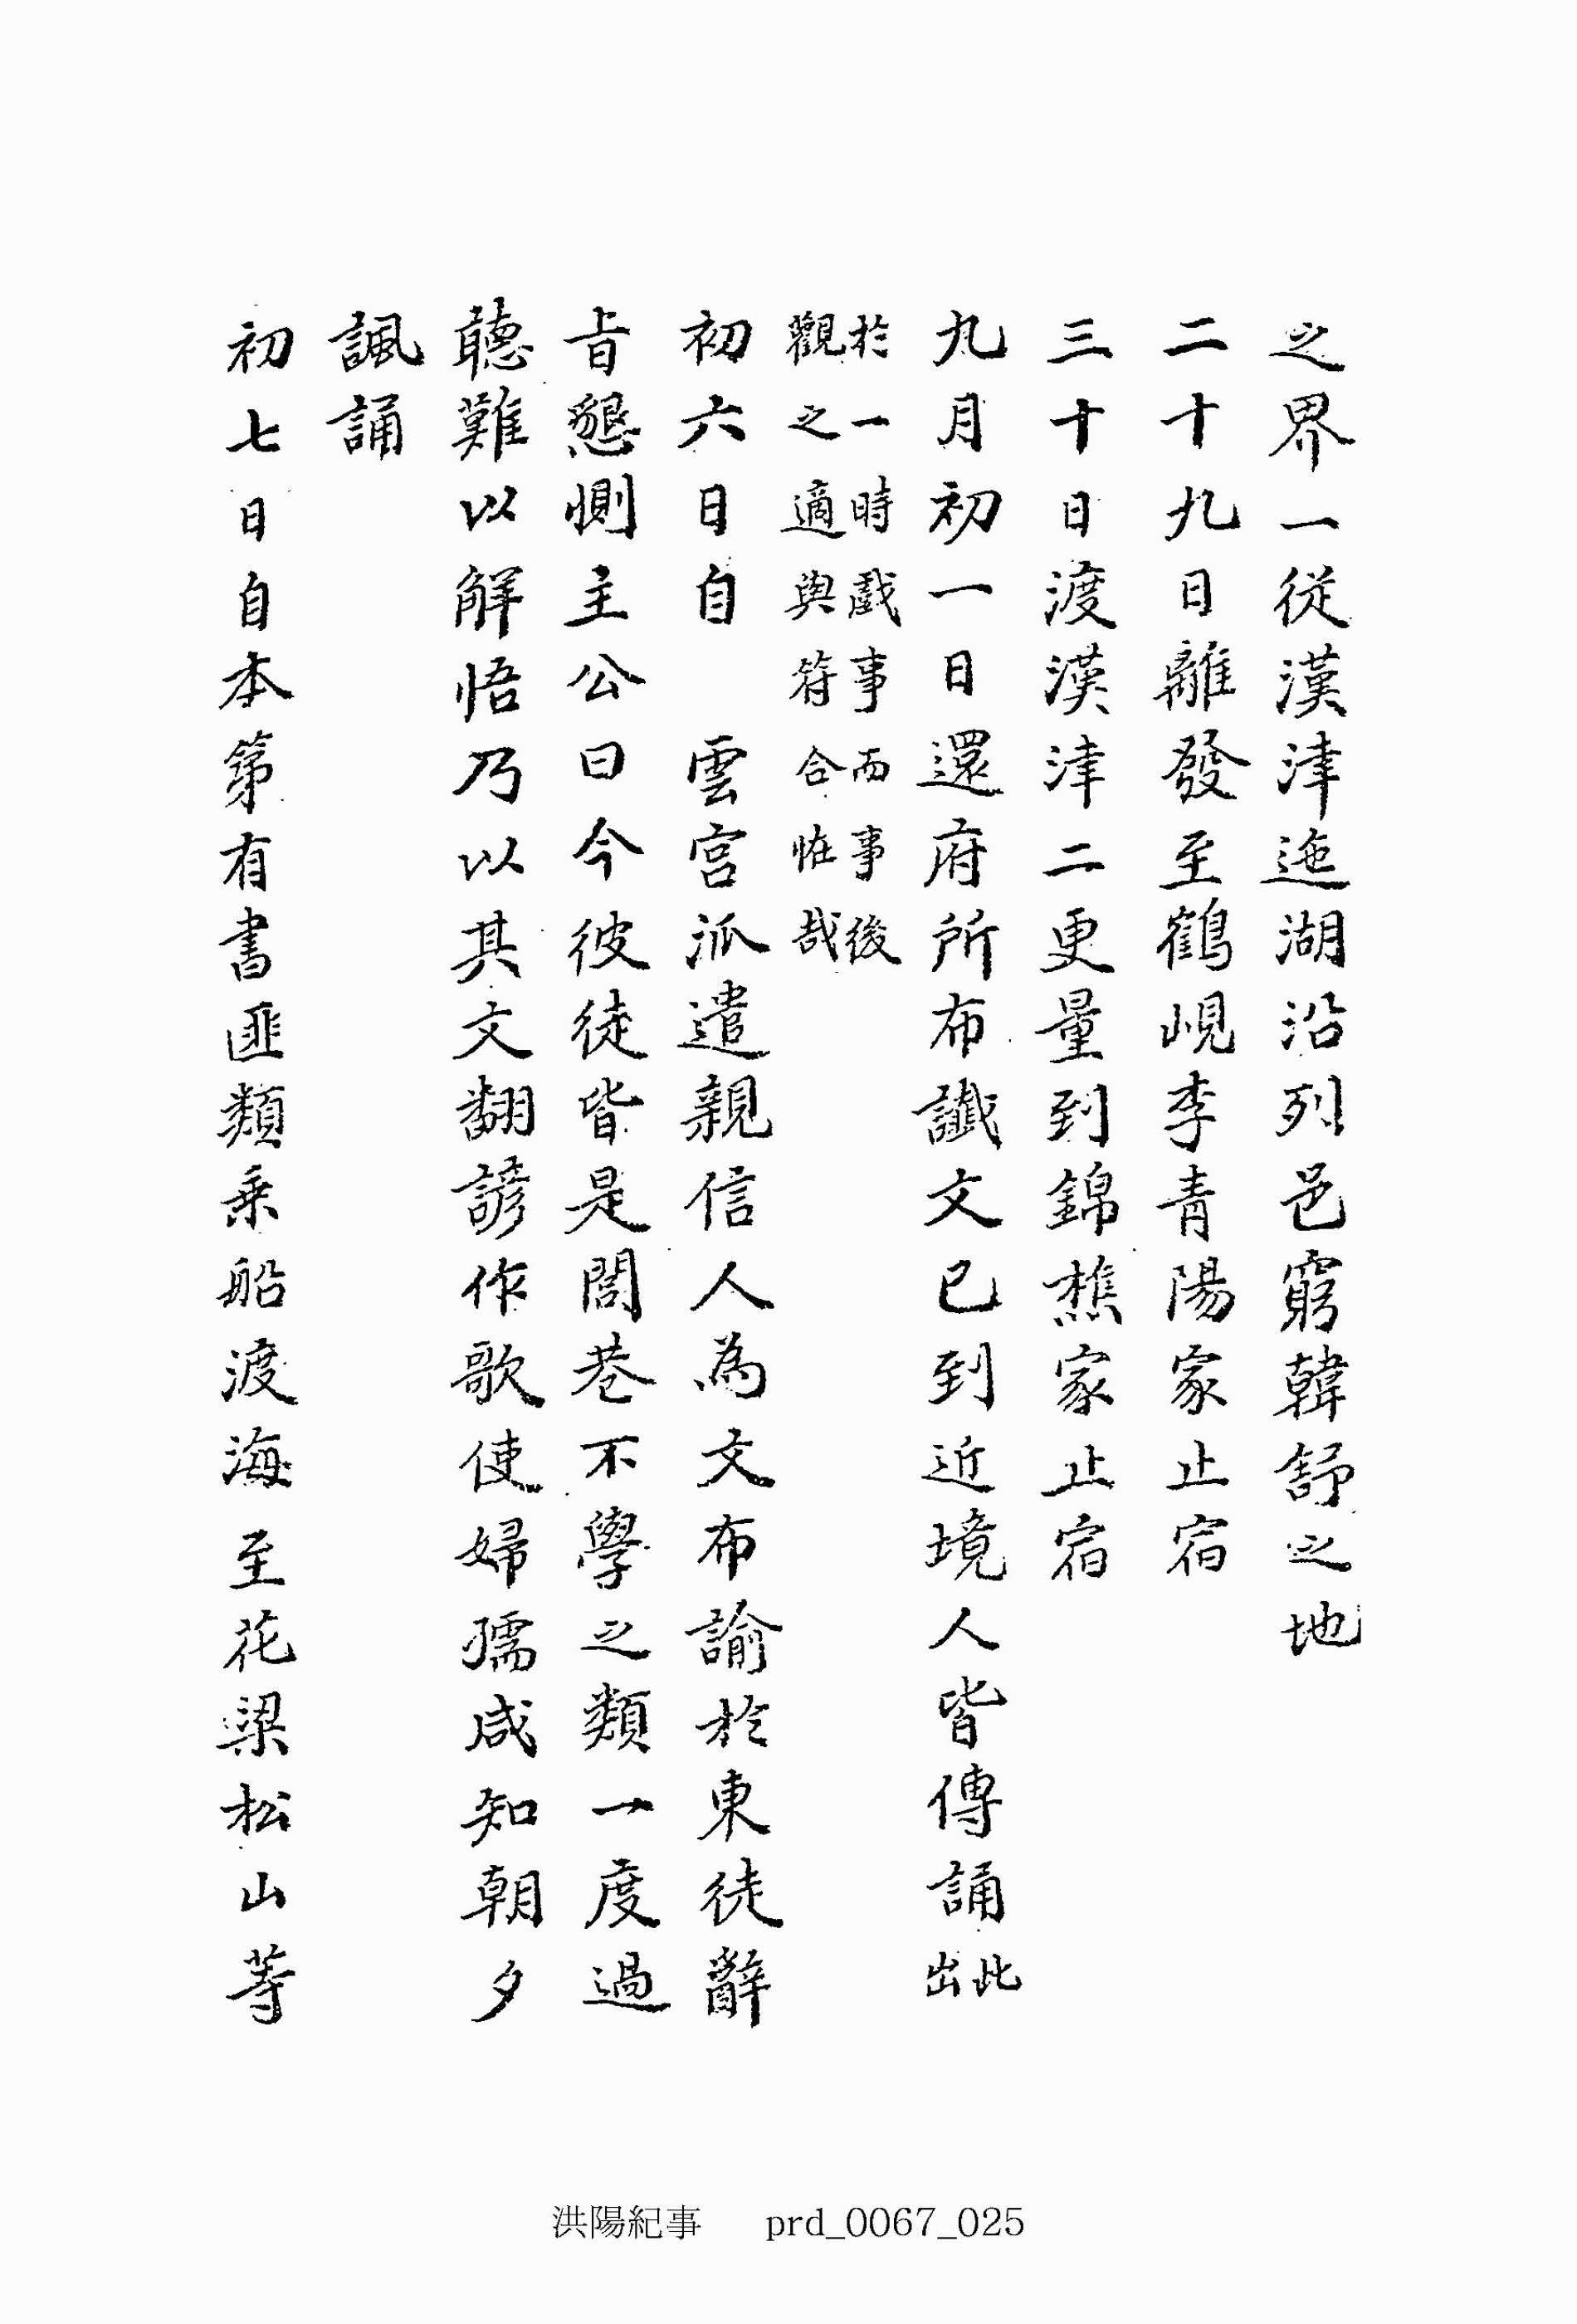 之界一從漢津迤湖沿列邑窮韓舒之地
二十九日離發至鶴峴李青陽家止宿
三十日渡漢津二更量到錦樵家止宿
九月初一日還府所布讖文已到近境人皆傳誦此出
於一時戱事而事後
觀之適與符合恠哉
初六日自 雲宮派遣親信人為文布諭於東徒辭
旨懇惻主公曰今彼徒皆是閭巷不學之類一度過
聽難以解悟乃以其文翻諺作歌使婦孺咸知朝夕
諷誦
初七日自本第有書匪類乘船渡海至花梁松山等
洪陽紀事 prd_0067_025